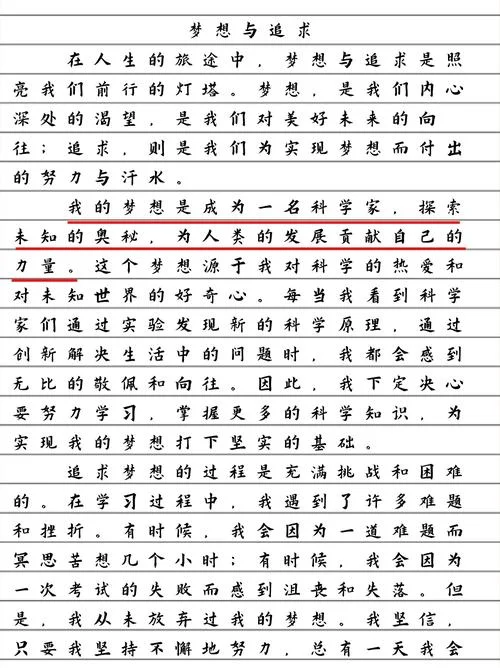 梦想与追求
在人生的旅途中，梦想与追求是照
亮我们前行的灯塔。梦想，是我们内心
深处的渴望，是我们对美好未来的向
往；追求，则是我们为实现梦想而付出
的努力与汗水。
我的梦想是成为一名科学家，探索
未知的奥秘，为人类的发展贡献自己的
力量。这个梦想源于我对科学的热爱和
对未知世界的好奇心。每当我看到科学
家们通过实验发现新的科学原理，通过
创新解决生活中的问题时，我都会感到
无比的敬佩和向往。因此，我下定决心
要努力学习，掌握更多的科学知识，为
实现我的梦想打下坚实的基础。
追求梦想的过程是充满挑战和困难
的。在学习过程中，我遇到了许多难题
和挫折。有时候，我会因为一道难题而
冥思苦想几个小时；有时候，我会因为
一次考试的失败而感到沮丧和失落。但
是，我从未放弃过我的梦想。我坚信，
只要我坚持不懈地努力，总有一天我会